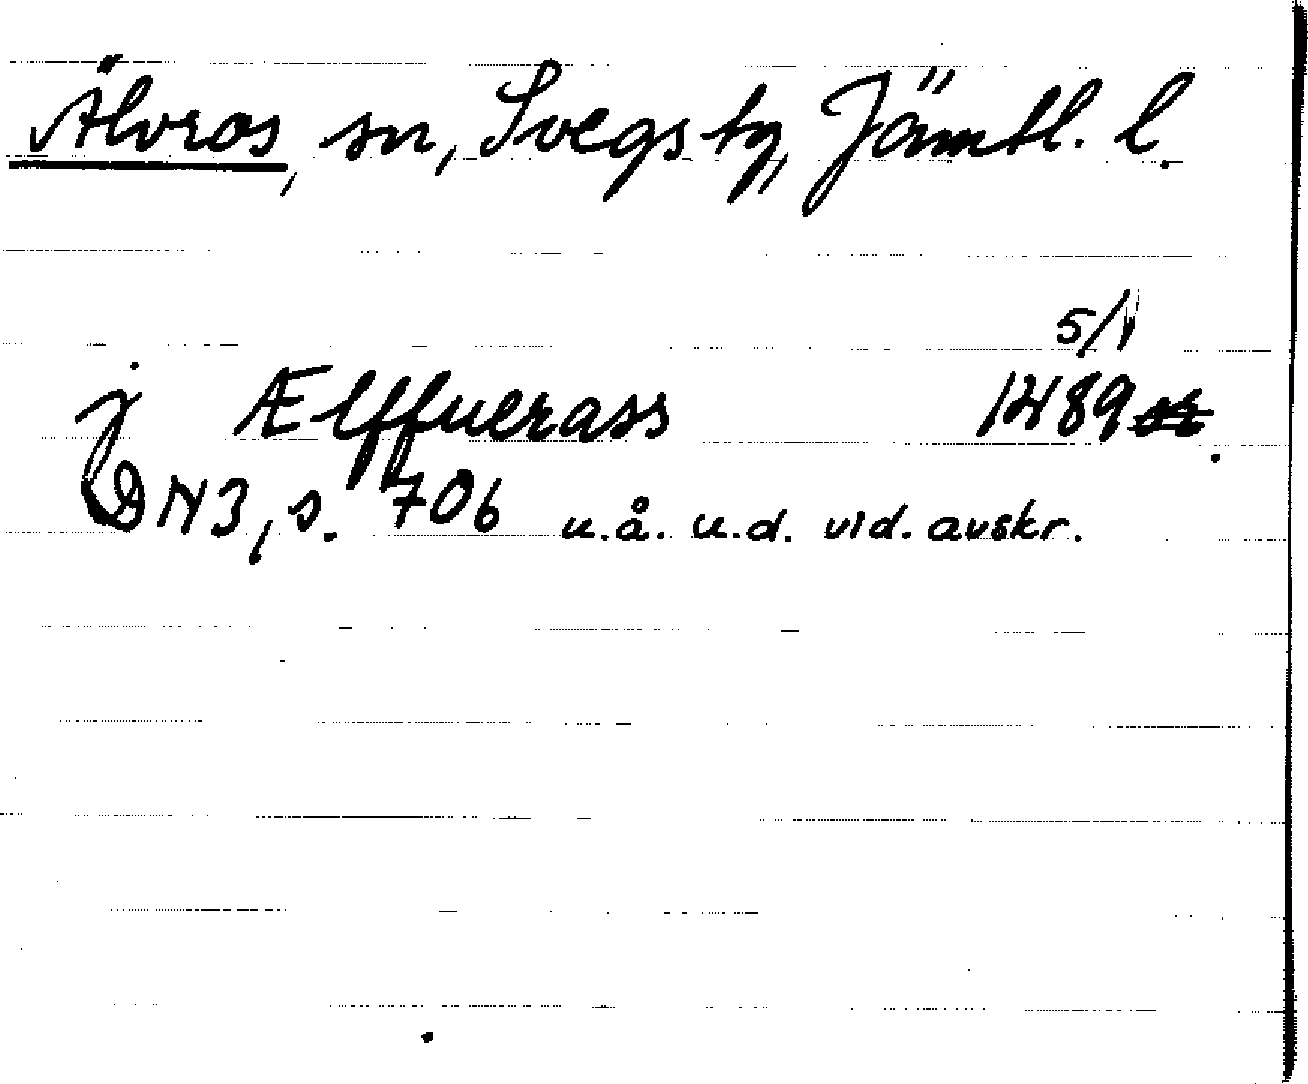 Älvros, sn, Svegs tg, Jämtl. l.
5/1
j Ælffuerass 1489
DN 3, s. 706 u.å. u.d. vid. avskr.